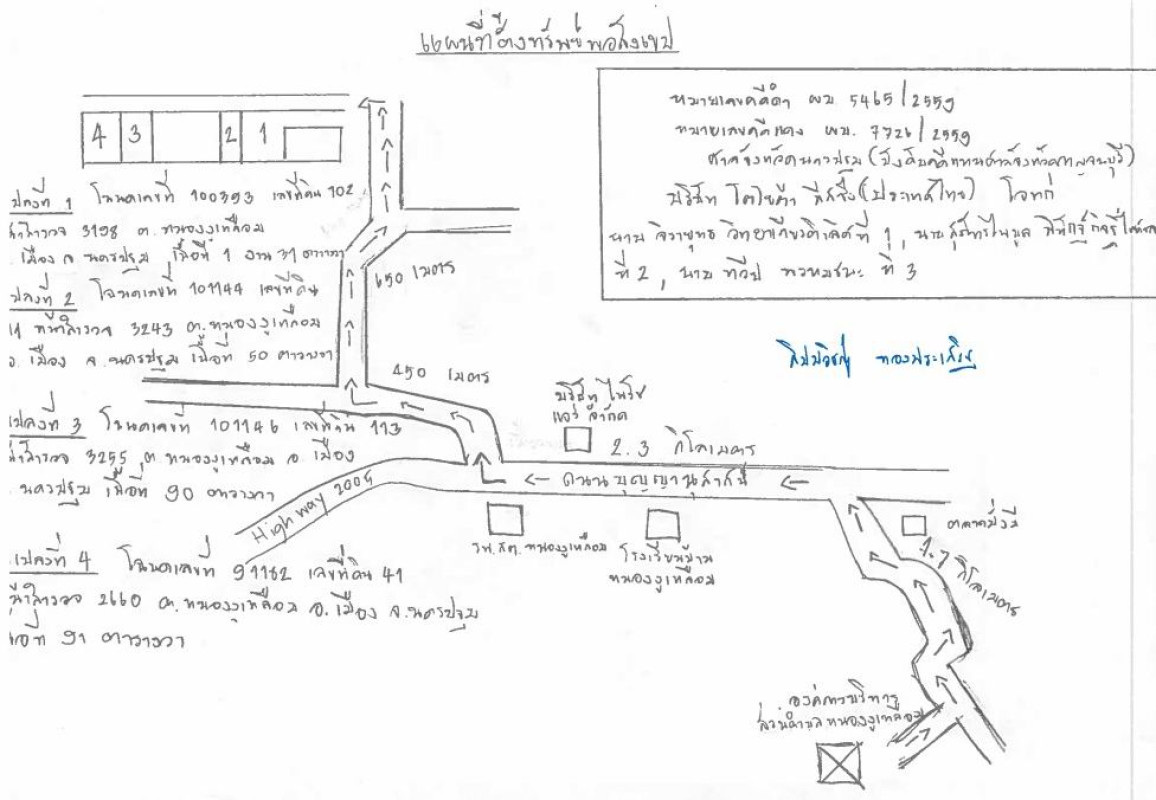 แผนที่ตั้งทรัพย์พอสังเขป
หมายเลขคดีดำ ผบ. 5465/2559
หมายเลขคดีแดง ผบ. 7726/2559
ศาลจังหวัดนครปฐม (บังคับคดีแทนศาลจังหวัดกาญจนบุรี)
บริษัท โตโยต้า ลีสซิ่ง (ประเทศไทย) โจทก์
นาย จิรายุทธ ที่ 1, นาย
ที่ 2, นาย ทวีป ที่ 3
4 3 2 1
แปลงที่ 1 โฉนดเลขที่ 100393 เลขที่ดิน 102
หน้าสำรวจ 3198 ต. หนองงูเหลือม
อ. เมือง จ. นครปฐม เนื้อที่ 1 งาน 31 ตารางวา
แปลงที่ 2 โฉนดเลขที่ 101144 เลขที่ดิน
11 หน้าสำรวจ 3243 ต. หนองงูเหลือม
อ. เมือง จ. นครปฐม เนื้อที่ 50 ตารางวา
แปลงที่ 3 โฉนดเลขที่ 101146 เลขที่ดิน 113
หน้าสำรวจ 3255 ต. หนองงูเหลือม อ. เมือง
จ. นครปฐม เนื้อที่ 90 ตารางวา
แปลงที่ 4 โฉนดเลขที่ 91162 เลขที่ดิน 41
หน้าสำรวจ 2660 ต. หนองงูเหลือม อ. เมือง จ. นครปฐม
เนื้อที่ 91 ตารางวา
650 เมตร
450 เมตร
บริษัท
จำกัด
2.3 กิโลเมตร
ถนนบุญญานุสาสน์
Highway 2005
รพ.สต. หนองงูเหลือม
โรงเรียนบ้าน
หนองงูเหลือม
1.7 กิโลเมตร
องค์การบริหาร
ส่วนตำบลหนองงูเหลือม